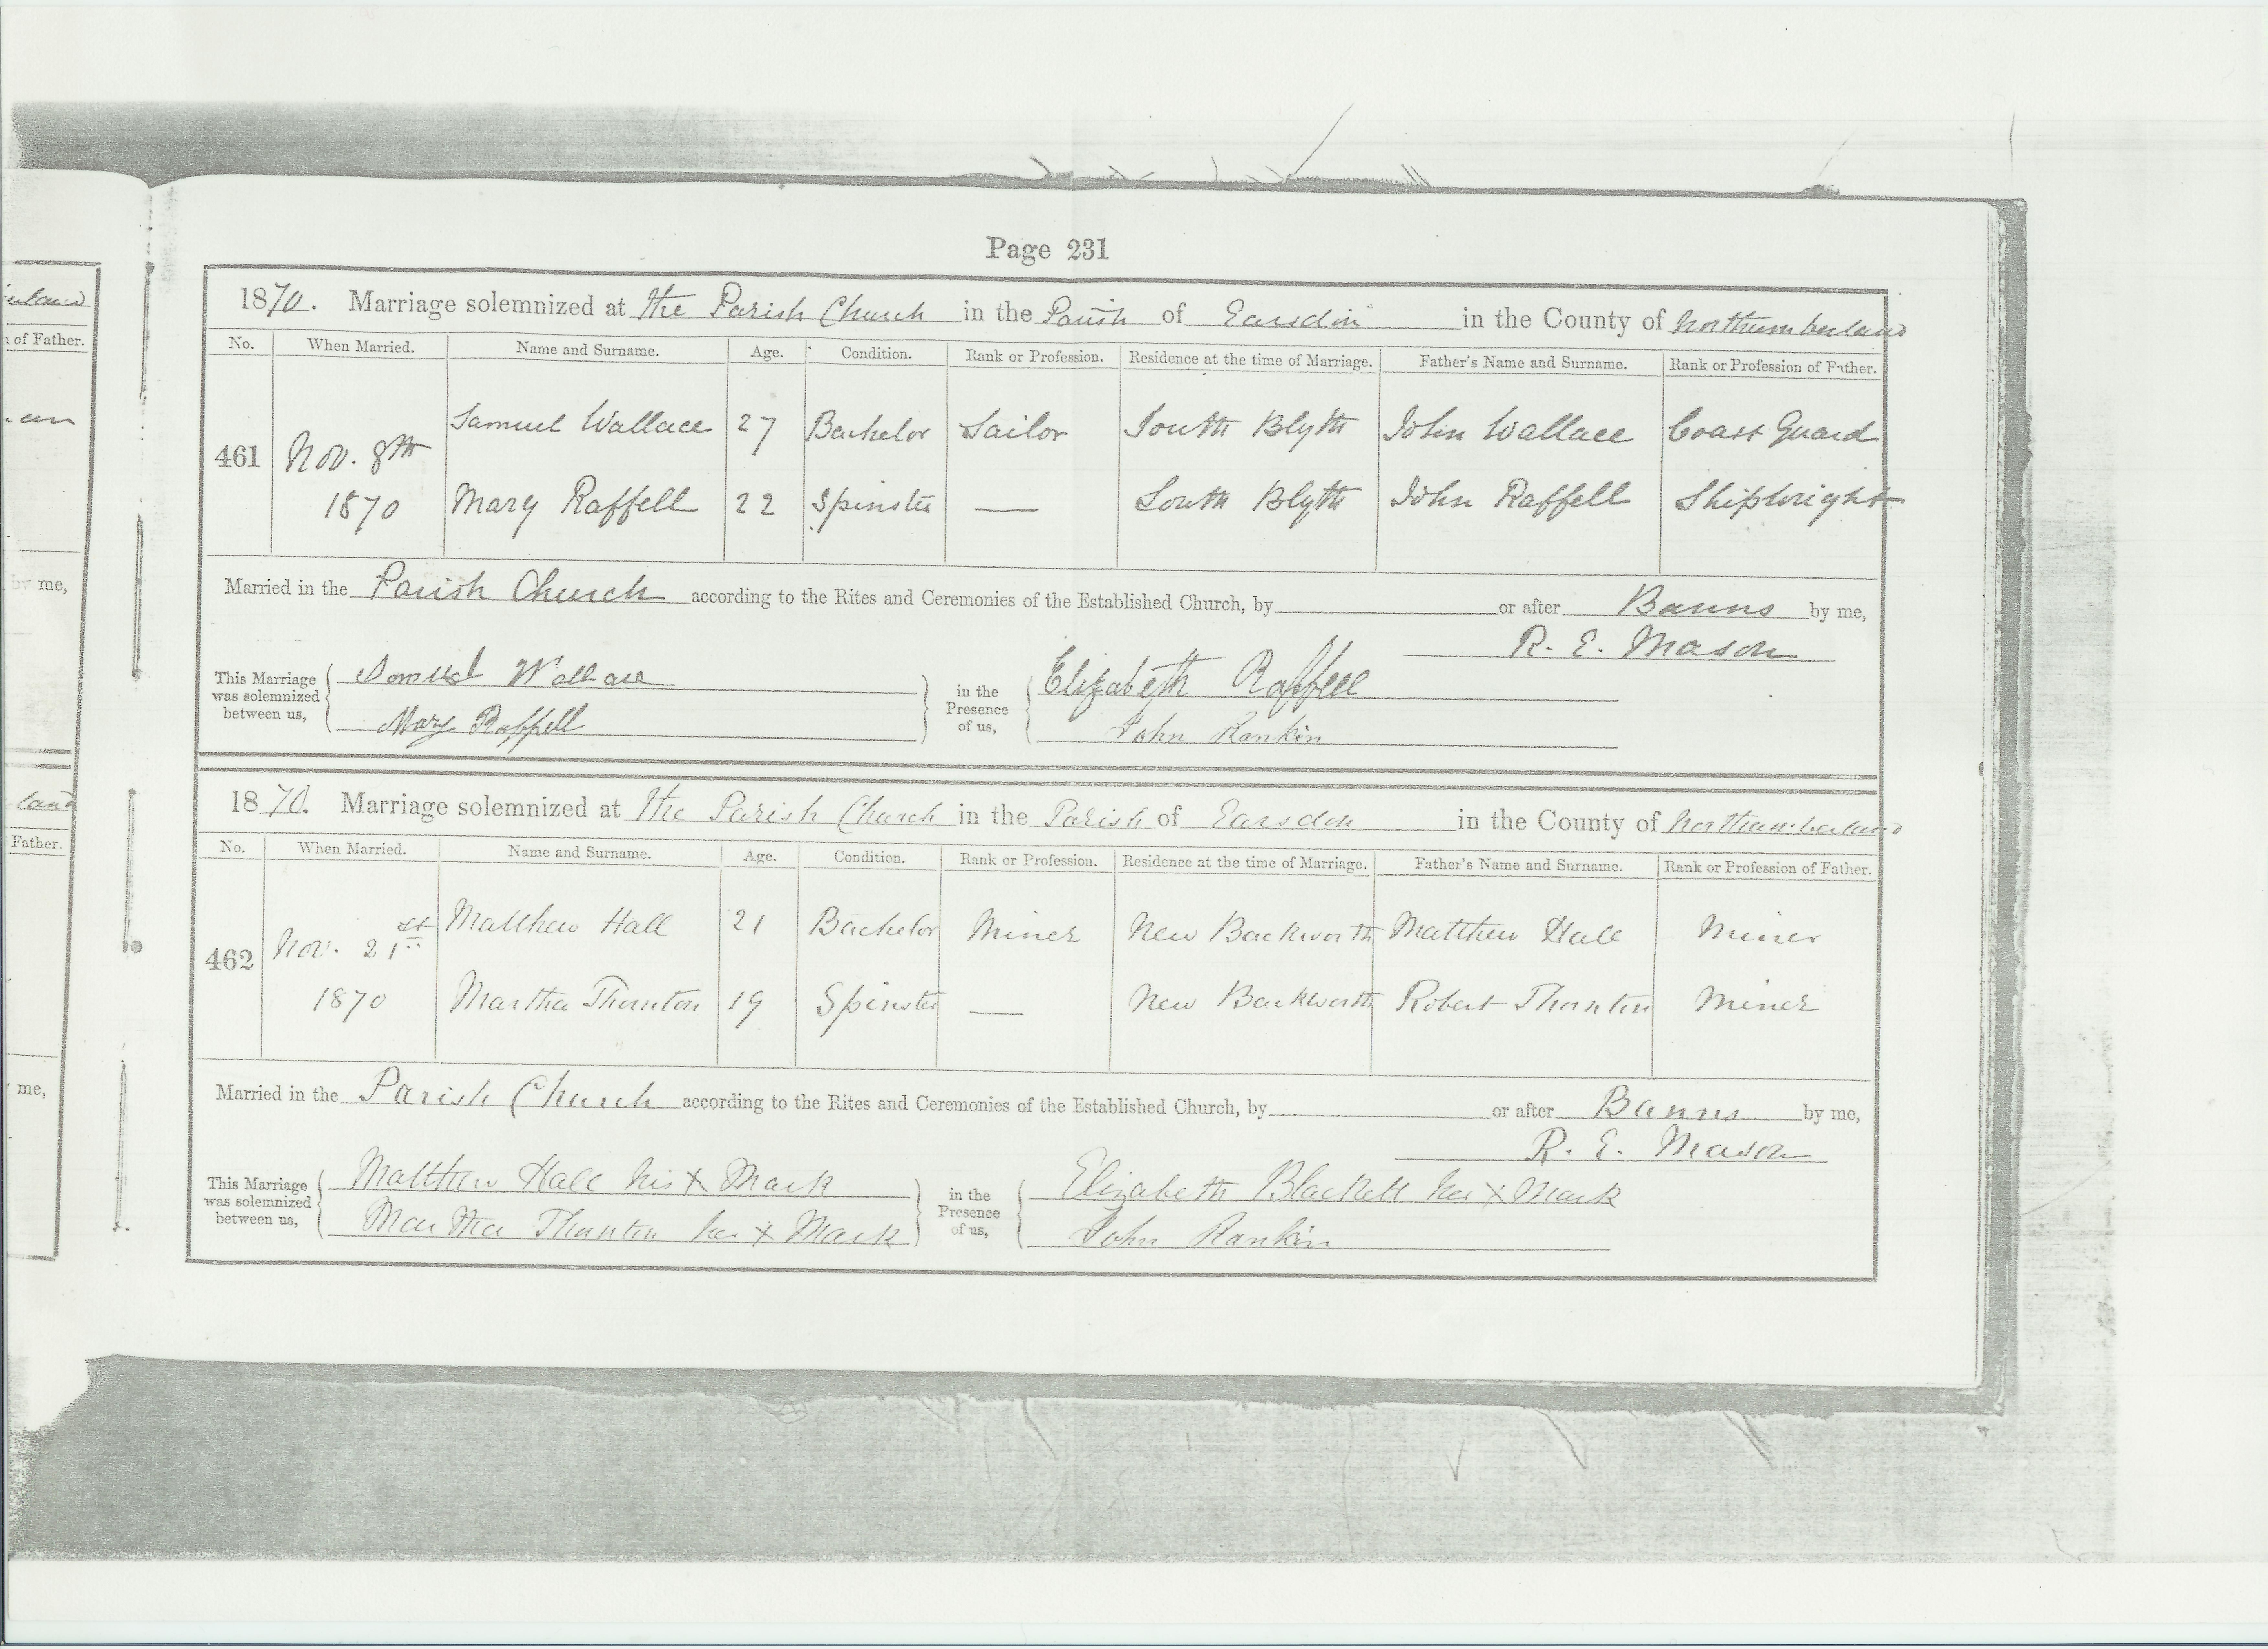 Page 231
1870. Marriage solemnized at the Parish Church in the Parish of Earsdon in the County of Northumberland
No. When Married. Name and Surname. Age. Condition. Rank or Profession. Residence at the time of Marriage. Father's Name and Surname. Rank or Profession of Father.
461 Nov. 8th Samuel Wallace 27 Bachelor Sailor South Blyth John Wallace Coast Guard
1870 Mary Raffell 22 Spinster — South Blyth John Raffell Shipwright
Married in the Parish Church according to the Rites and Ceremonies of the Established Church, by or after Banns by me,
R. E. Mason
This Marriage was solemnized between us, Samuel Wallace in the Presence of us, Elizabeth Raffell
Mary Raffell John Rankin
1870. Marriage solemnized at the Parish Church in the Parish of Earsdon in the County of Northumberland
No. When Married. Name and Surname. Age. Condition. Rank or Profession. Residence at the time of Marriage. Father's Name and Surname. Rank or Profession of Father.
462 Nov. 21st Matthew Hall 21 Bachelor Miner New Backworth Matthew Hall Miner
1870 Martha Thornton 19 Spinster — New Backworth Robert Thornton Miner
Married in the Parish Church according to the Rites and Ceremonies of the Established Church, by or after Banns by me,
R. E. Mason
This Marriage was solemnized between us, Matthew Hall his X Mark in the Presence of us, Elizabeth Blackett her X Mark
Martha Thornton her X Mark John Rankin
of Father.
by me,
Father.
me,